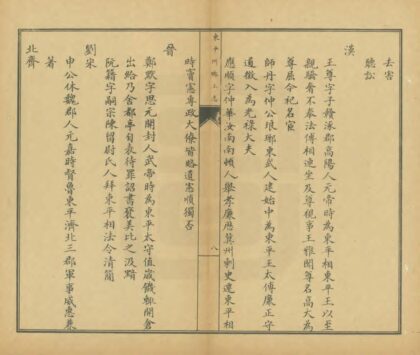 去害
聽訟
漢
王尊字子贛涿郡高陽人元帝時為東平相東平王以至
親驕奢不奉法傅相連坐及尊視事王雅聞尊名高大為
尊屈令祀名宦
師丹字仲公琅琊東武人建始中為東平王太傅廉正守
道徵入為光祿大夫
應順字仲華汝南南頓人舉孝廉歷冀州刺史遷東平相
東平州鄉土志
八
時竇憲專政大僚皆賂遺憲順獨否
晉
鄭默字思元開封人武帝時為東平太守值歲饑輒開倉
出給乃舍都亭自表待罪詔書褒美比之汲黯
阮籍字嗣宗陳留尉氏人拜東平相法令清簡
劉宋
申公休魏郡人元嘉時督魯東平濟北三郡軍事威惠兼
著
北齊